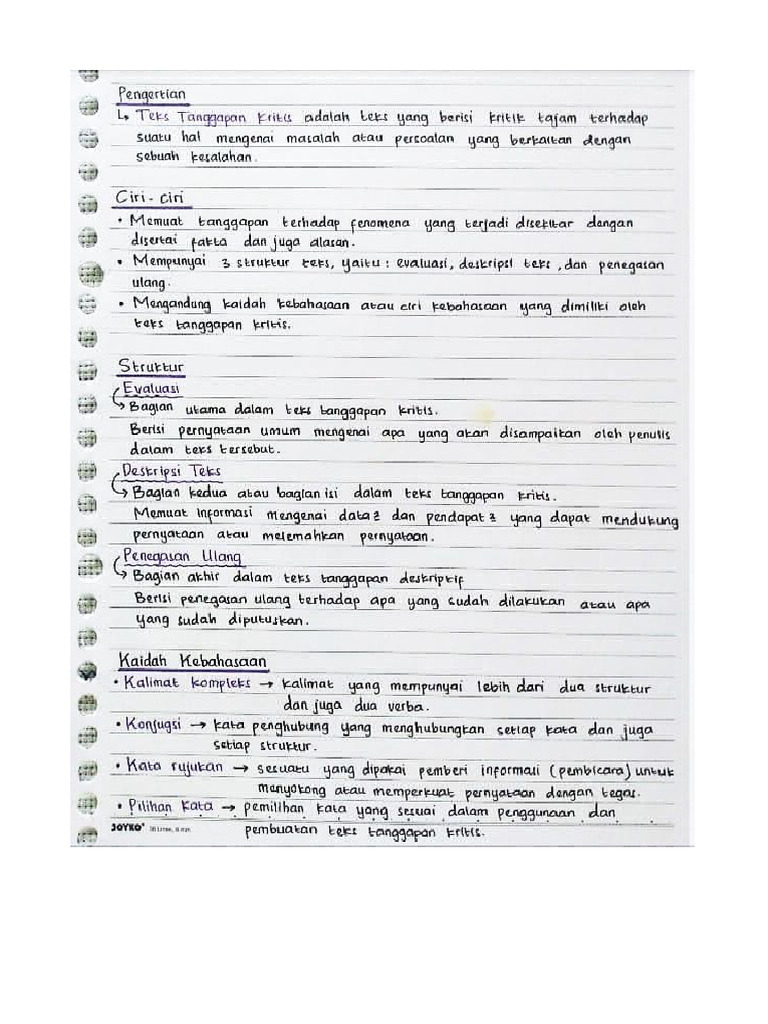 Pengertian
↳ Teks Tanggapan Kritis adalah teks yang berisi kritik tajam terhadap
suatu hal mengenai masalah atau persoalan yang berkaitan dengan
sebuah kesalahan.
Ciri-ciri
• Memuat tanggapan terhadap fenomena yang terjadi disekitar dengan
disertai fakta dan juga alasan.
• Mempunyai 3 struktur teks, yaitu : evaluasi, deskripsi teks, dan penegasan
ulang.
• Mengandung kaidah kebahasaan atau ciri kebahasaan yang dimiliki oleh
teks tanggapan kritis.
Struktur
Evaluasi
→ Bagian utama dalam teks tanggapan kritis.
Berisi pernyataan umum mengenai apa yang akan disampaikan oleh penulis
dalam teks tersebut.
Deskripsi Teks
→ Bagian kedua atau bagian isi dalam teks tanggapan kritis.
Memuat informasi mengenai data2 dan pendapat2 yang dapat mendukung
pernyataan atau melemahkan pernyataan.
Penegasan Ulang
→ Bagian akhir dalam teks tanggapan deskriptif
Berisi penegasan ulang terhadap apa yang sudah dilakukan atau apa
yang sudah diputuskan.
Kaidah Kebahasaan
• Kalimat kompleks → kalimat yang mempunyai lebih dari dua struktur
dan juga dua verba.
• Konjugsi → kata penghubung yang menghubungkan setiap kata dan juga
setiap struktur.
• Kata rujukan → sesuatu yang dipakai pemberi informasi (pembicara) untuk
menyokong atau memperkuat pernyataan dengan tegas.
• Pilihan kata → pemilihan kata yang sesuai dalam penggunaan dan
JOYKO 30 Lines, 8 mm
pembuatan teks tanggapan kritis.